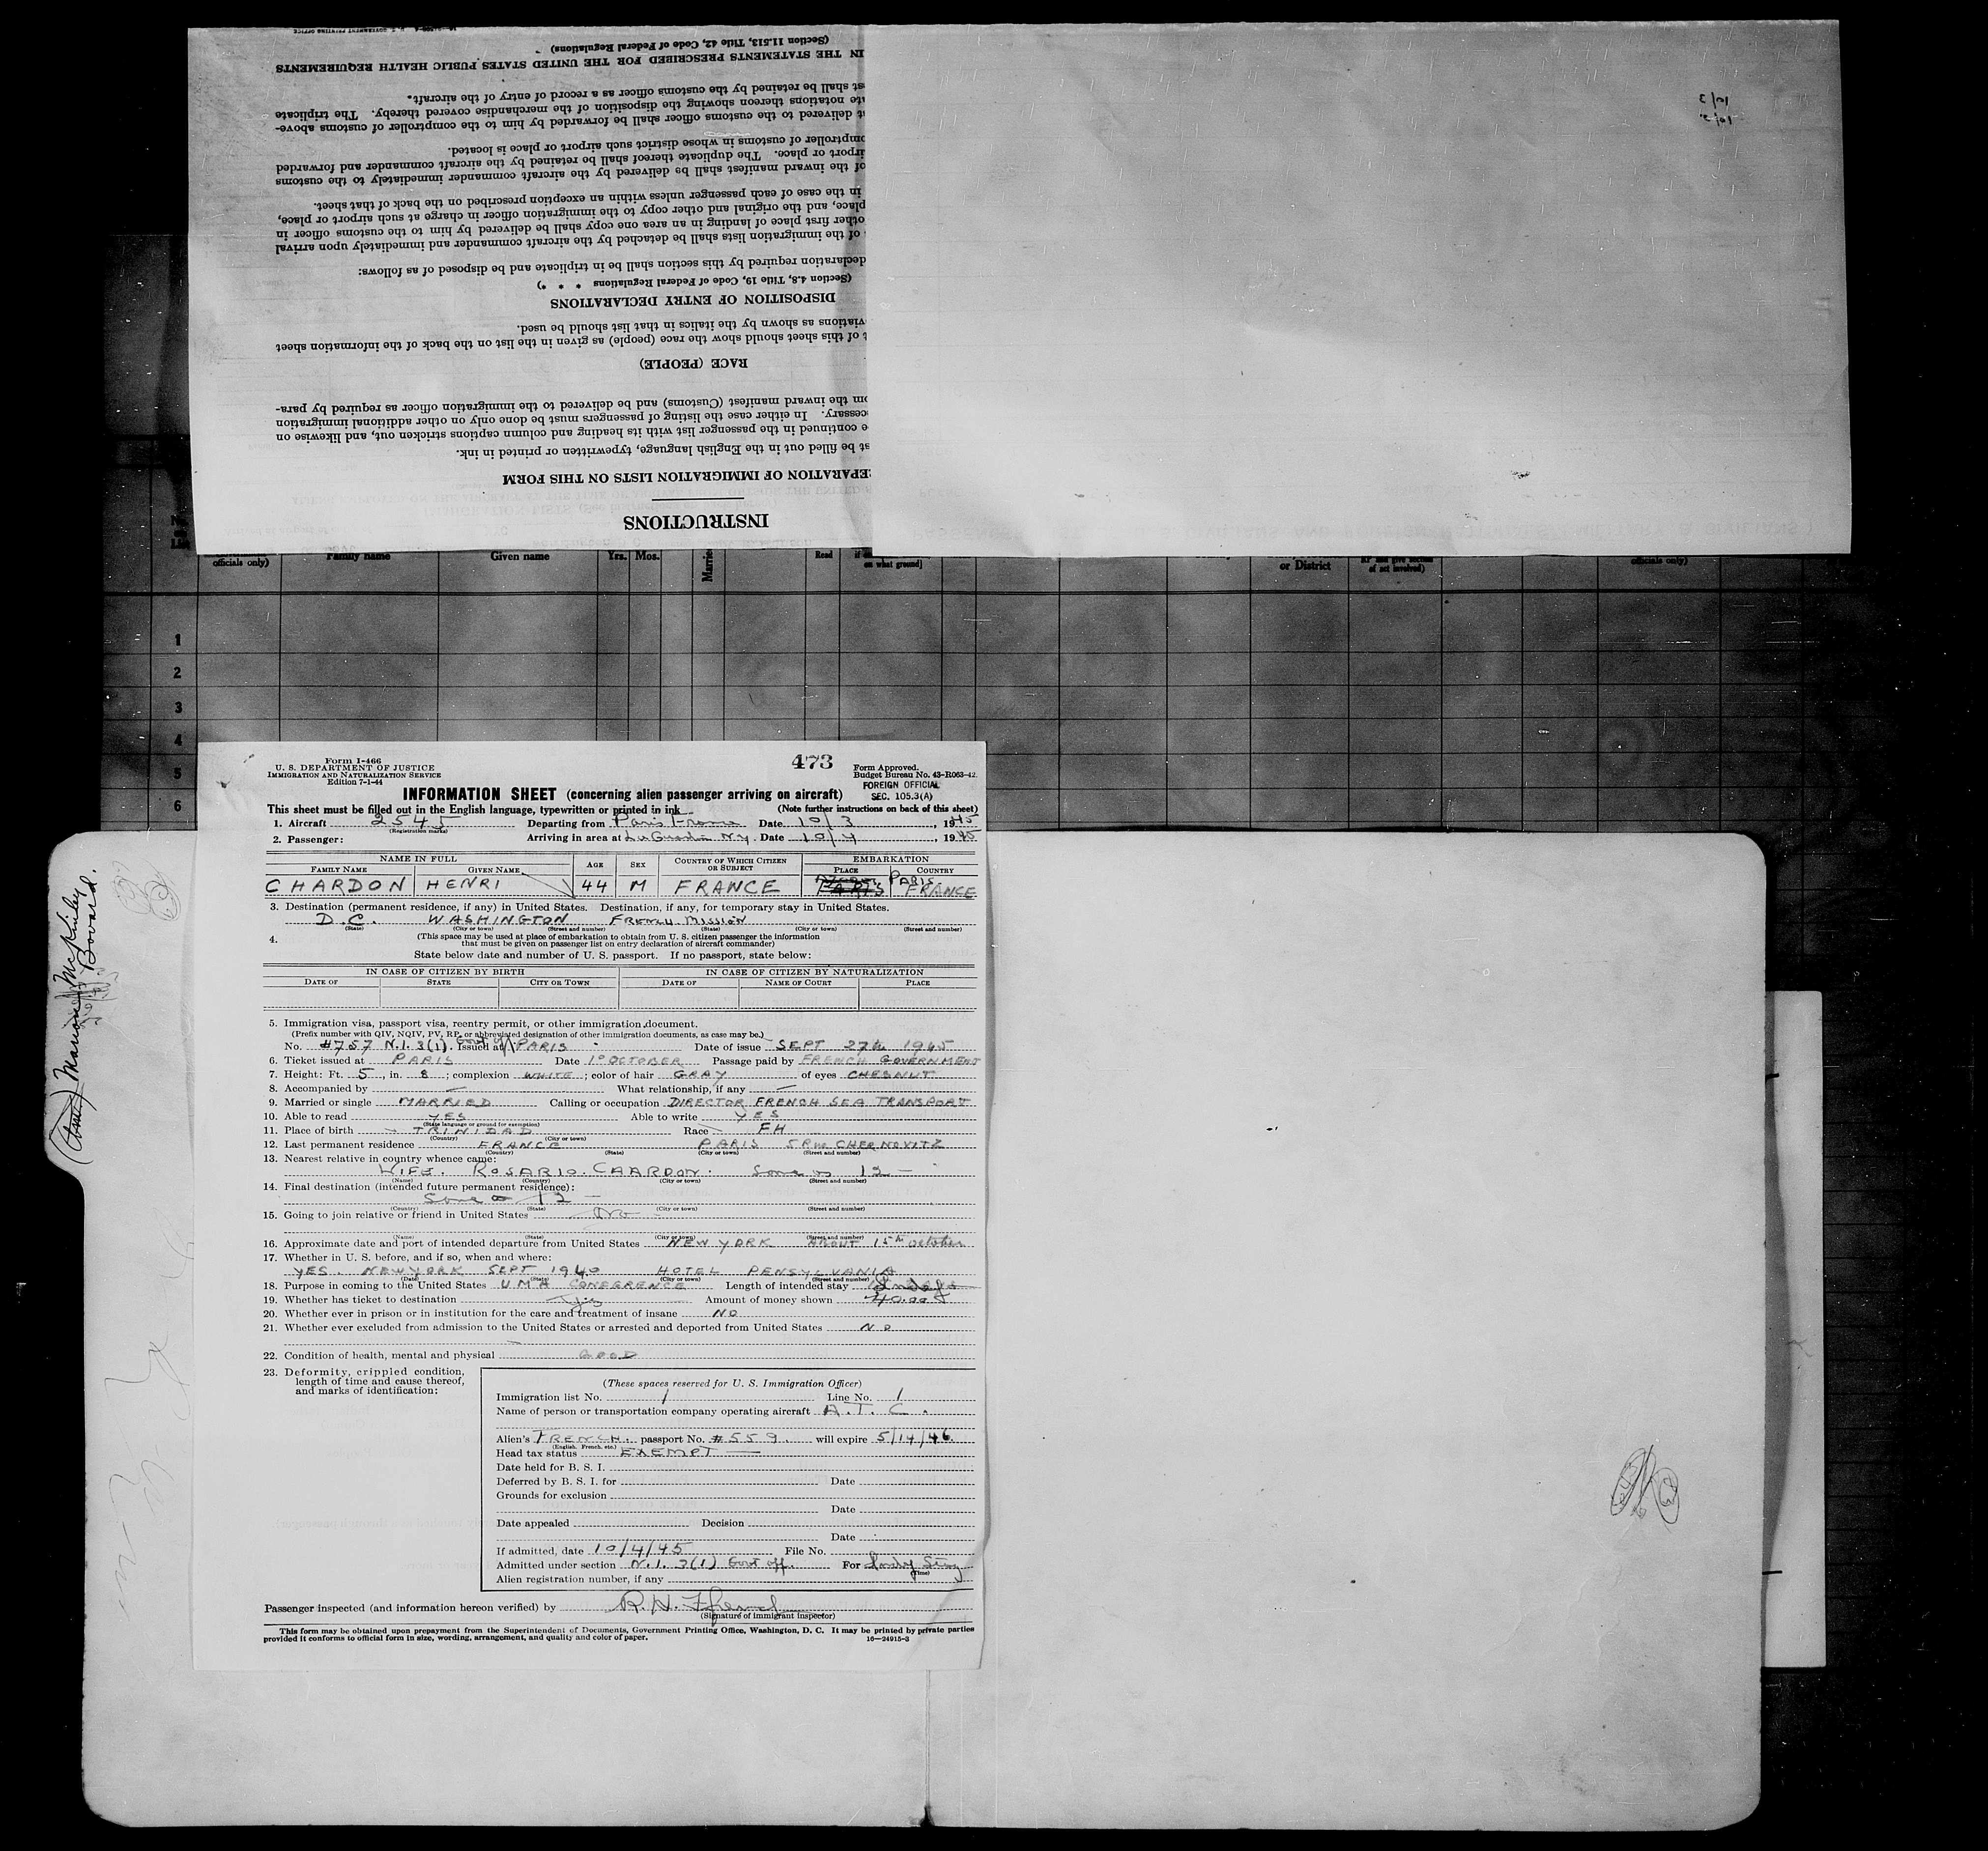 INSTRUCTIONS
EPARATION OF IMMIGRATION LISTS ON THIS FORM
st be filled out in the English language, typewritten or printed in ink.
e continued in the passenger list with its heading and column captions stricken out, and likewise on
cessary. In either case the listing of passengers must be done only on other additional immigration
om the inward manifest (Customs) and be delivered to the immigration officer as required by para-
RACE (PEOPLE)
t of this sheet should show the race (people) as given in the list on the back of the information sheet
viations as shown by the italics in that list should be used.
DISPOSITION OF ENTRY DECLARATIONS
(Section 4.8, Title 19, Code of Federal Regulations * * *)
declaration required by this section shall be in triplicate and be disposed of as follows:
of the immigration lists shall be detached by the aircraft commander and immediately upon arrival
other first place of landing in an area one copy shall be delivered by him to the customs officer in
place, and the original and other copy to the immigration officer in charge at such airport or place,
in the case of each passenger unless within an exception prescribed on the back of that sheet.
of the inward manifest shall be delivered by the aircraft commander immediately to the customs
irport or place. The duplicate thereof shall be retained by the aircraft commander and forwarded
omptroller of customs in whose district such airport or place is located.
t delivered to the customs officer shall be forwarded by him to the comptroller of customs above-
ate notations thereon showing the disposition of the merchandise covered thereby. The triplicate
st shall be retained by the customs officer as a record of entry of the aircraft.
IN THE STATEMENTS PRESCRIBED FOR THE UNITED STATES PUBLIC HEALTH REQUIREMENTS
(Section 11.513, Title 42, Code of Federal Regulations)
10/3
10/3
officials only) Family name Given name Yrs. Mos. Married Read on what ground] or District of act involved) officials only)
1
2
3
4
5
6
Marion McKinley
Bovard.
Form I-466
U. S. DEPARTMENT OF JUSTICE
IMMIGRATION AND NATURALIZATION SERVICE
Edition 7-1-44
473
Form Approved.
Budget Bureau No. 43-R063-42.
FOREIGN OFFICIAL
SEC. 105.3(A)
INFORMATION SHEET (concerning alien passenger arriving on aircraft)
This sheet must be filled out in the English language, typewritten or printed in ink (Note further instructions on back of this sheet)
1. Aircraft 2545 Departing from Paris France Date 10/3, 1945
(Registration marks)
2. Passenger: Arriving in area at La Guardia N.Y. Date 10/4, 1945
NAME IN FULL AGE SEX COUNTRY OF WHICH CITIZEN OR SUBJECT EMBARKATION
FAMILY NAME GIVEN NAME PLACE COUNTRY
CHARDON HENRI 44 M FRANCE PARIS FRANCE
3. Destination (permanent residence, if any) in United States. Destination, if any, for temporary stay in United States.
D.C. WASHINGTON FRENCH MISSION
(State) (City or town) (Street and number) (State) (City or town) (Street and number)
4. (This space may be used at place of embarkation to obtain from U. S. citizen passenger the information
that must be given on passenger list on entry declaration of aircraft commander)
State below date and number of U. S. passport. If no passport, state below:
IN CASE OF CITIZEN BY BIRTH IN CASE OF CITIZEN BY NATURALIZATION
DATE OF STATE CITY OR TOWN DATE OF NAME OF COURT PLACE
5. Immigration visa, passport visa, reentry permit, or other immigration document.
(Prefix number with QIV, NQIV, PV, RP, or abbreviated designation of other immigration documents, as case may be.)
No. #757 N.I. 3(1). Govt off Issued at PARIS Date of issue SEPT 27th 1945
6. Ticket issued at PARIS Date 1º OCTOBER Passage paid by FRENCH GOVERNMENT
7. Height: Ft. 5, in. 8; complexion WHITE; color of hair GRAY of eyes CHESNUT
8. Accompanied by — What relationship, if any —
9. Married or single MARRIED Calling or occupation DIRECTOR FRENCH SEA TRANSPORT
10. Able to read YES Able to write YES
(State language or ground for exemption)
11. Place of birth TRINIDAD Race FH
(Country) (City or town)
12. Last permanent residence FRANCE PARIS 5 Rue CHERNOVITZ
(Country) (State) (City or town) (Street and number)
13. Nearest relative in country whence came:
WIFE. ROSARIO. CAARDON. Same as 12 —
(Name) (Country) (City or town) (Street and number)
14. Final destination (intended future permanent residence):
Same as 12 —
(Country) (State) (City or town) (Street and number)
15. Going to join relative or friend in United States No
(Name) (State) (City or town) (Street and number)
16. Approximate date and port of intended departure from United States NEW YORK ABOUT 15th October
17. Whether in U. S. before, and if so, when and where:
YES. NEW YORK SEPT 1940 HOTEL PENSYLVANIA
(Date) (State) (City or town) (Street and number)
18. Purpose in coming to the United States UMA CONFERENCE Length of intended stay
19. Whether has ticket to destination Yes Amount of money shown 40.00$
20. Whether ever in prison or in institution for the care and treatment of insane NO
21. Whether ever excluded from admission to the United States or arrested and deported from United States NO
22. Condition of health, mental and physical GOOD
23. Deformity, crippled condition,
length of time and cause thereof,
and marks of identification:
(These spaces reserved for U. S. Immigration Officer)
Immigration list No. 1 Line No. 1
Name of person or transportation company operating aircraft A.T.C.
Alien's FRENCH. passport No. #559. will expire 5/14/46.
(English, French, etc.)
Head tax status EXEMPT —
Date held for B. S. I.
Deferred by B. S. I. for Date
Grounds for exclusion
Date
Date appealed Decision
Date
If admitted, date 10/4/45 File No.
Admitted under section N.I. 3(1) Govt off. For
(Time)
Alien registration number, if any
Passenger inspected (and information hereon verified) by R.H.
(Signature of immigrant inspector)
This form may be obtained upon prepayment from the Superintendent of Documents, Government Printing Office, Washington, D. C. It may be printed by private parties
provided it conforms to official form in size, wording, arrangement, and quality and color of paper. 16—24915-3